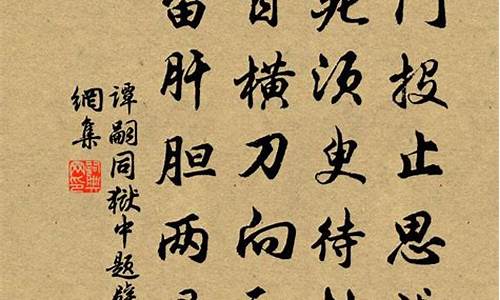 门投止思
死须臾待
自横刀向
留肝胆两
谭嗣同狱中题壁
網集